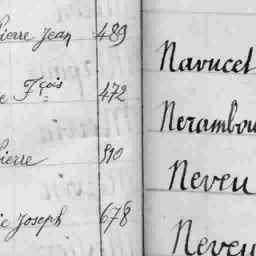 Pierre Jean 489
Fçois 472
Pierre 510
Joseph 678
Navucet
Nerambou
Neveu
Neveu